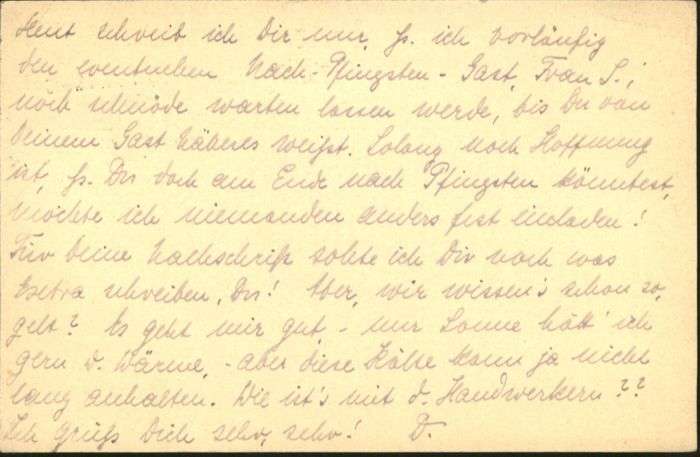 Heut schreib ich Dir nur, ds. ich vorläufig
den eventuellen Nach-Pfingsten-Gast, Frau S.,
noch schnöde warten lassen werde, bis Du von
Deinem Gast Näheres weißt. Solang noch Hoffnung
ist, ds. Du doch am Ende nach Pfingsten könntest,
möchte ich niemanden anders fest einladen!
Für Deine Nachschrift sollte ich Dir noch was
Extra schreiben, Du! Aber, wir wissen's schon so,
gelt? Es geht mir gut, - nur Sonne hätt' ich
gern u. Wärme, - aber diese Kälte kann ja nicht
lang anhalten. Wie ist's mit d. Handwerkern??
Ich grüß Dich sehr, sehr! D.